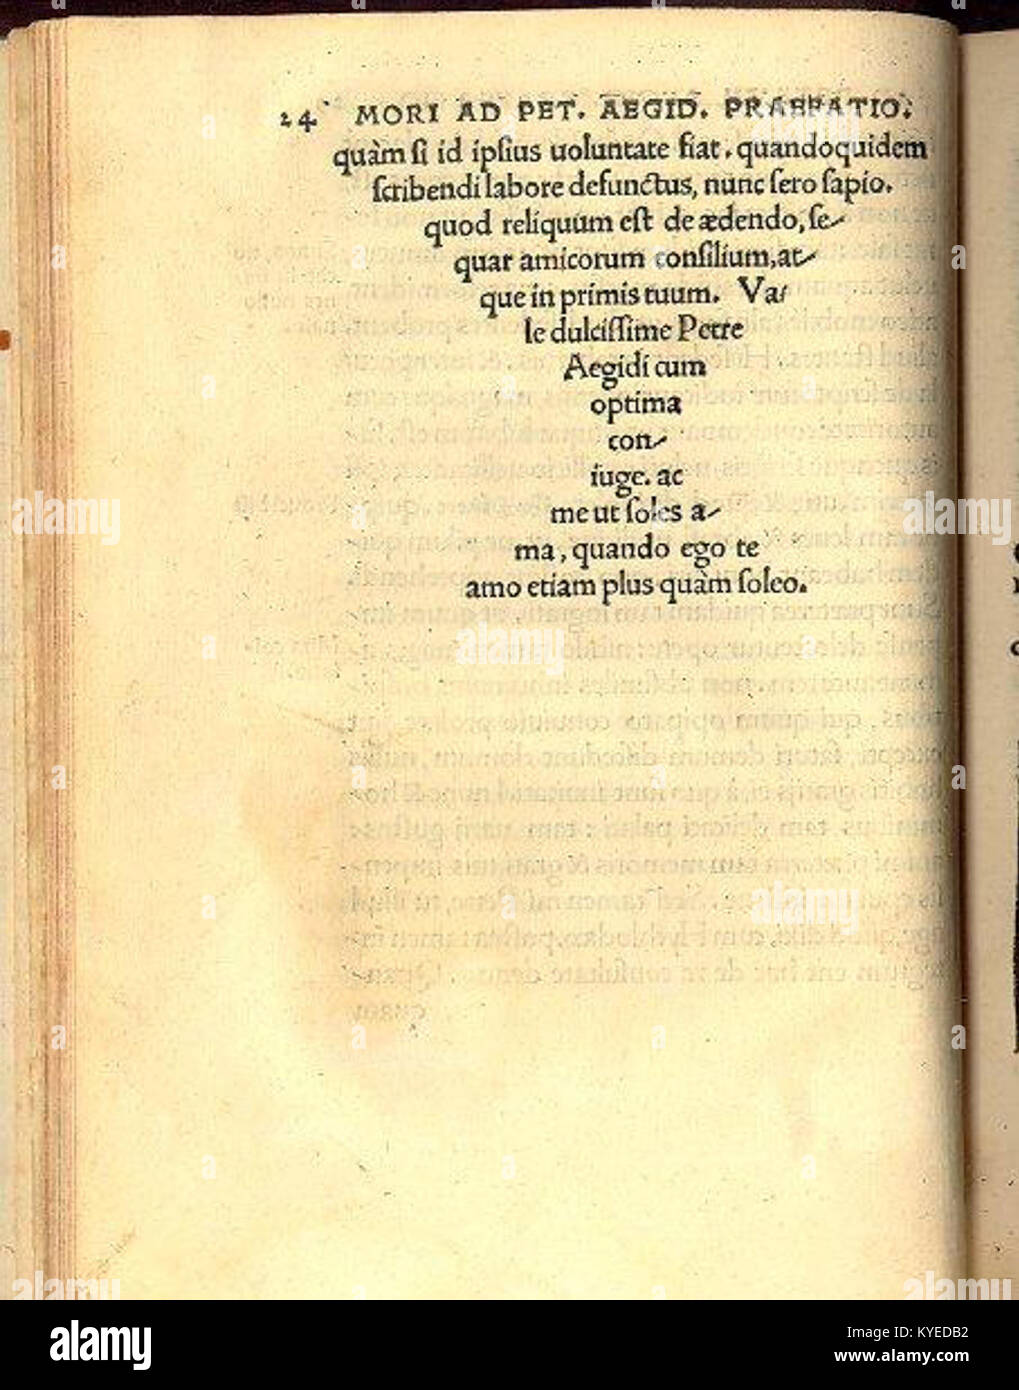 24 MORI AD PET. AEGID. PRAEFATIO.
quàm si id ipsius uoluntate fiat. quandoquidem
scribendi labore defunctus, nunc sero sapio.
quod reliquum est de ædendo, se-
quar amicorum consilium, at-
que in primis tuum. Va-
le dulcissime Petre
Aegidi cum
optima
con-
iuge. ac
me ut soles a-
ma, quando ego te
amo etiam plus quàm soleo.
alamy
Image ID: KYEDB2
www.alamy.com